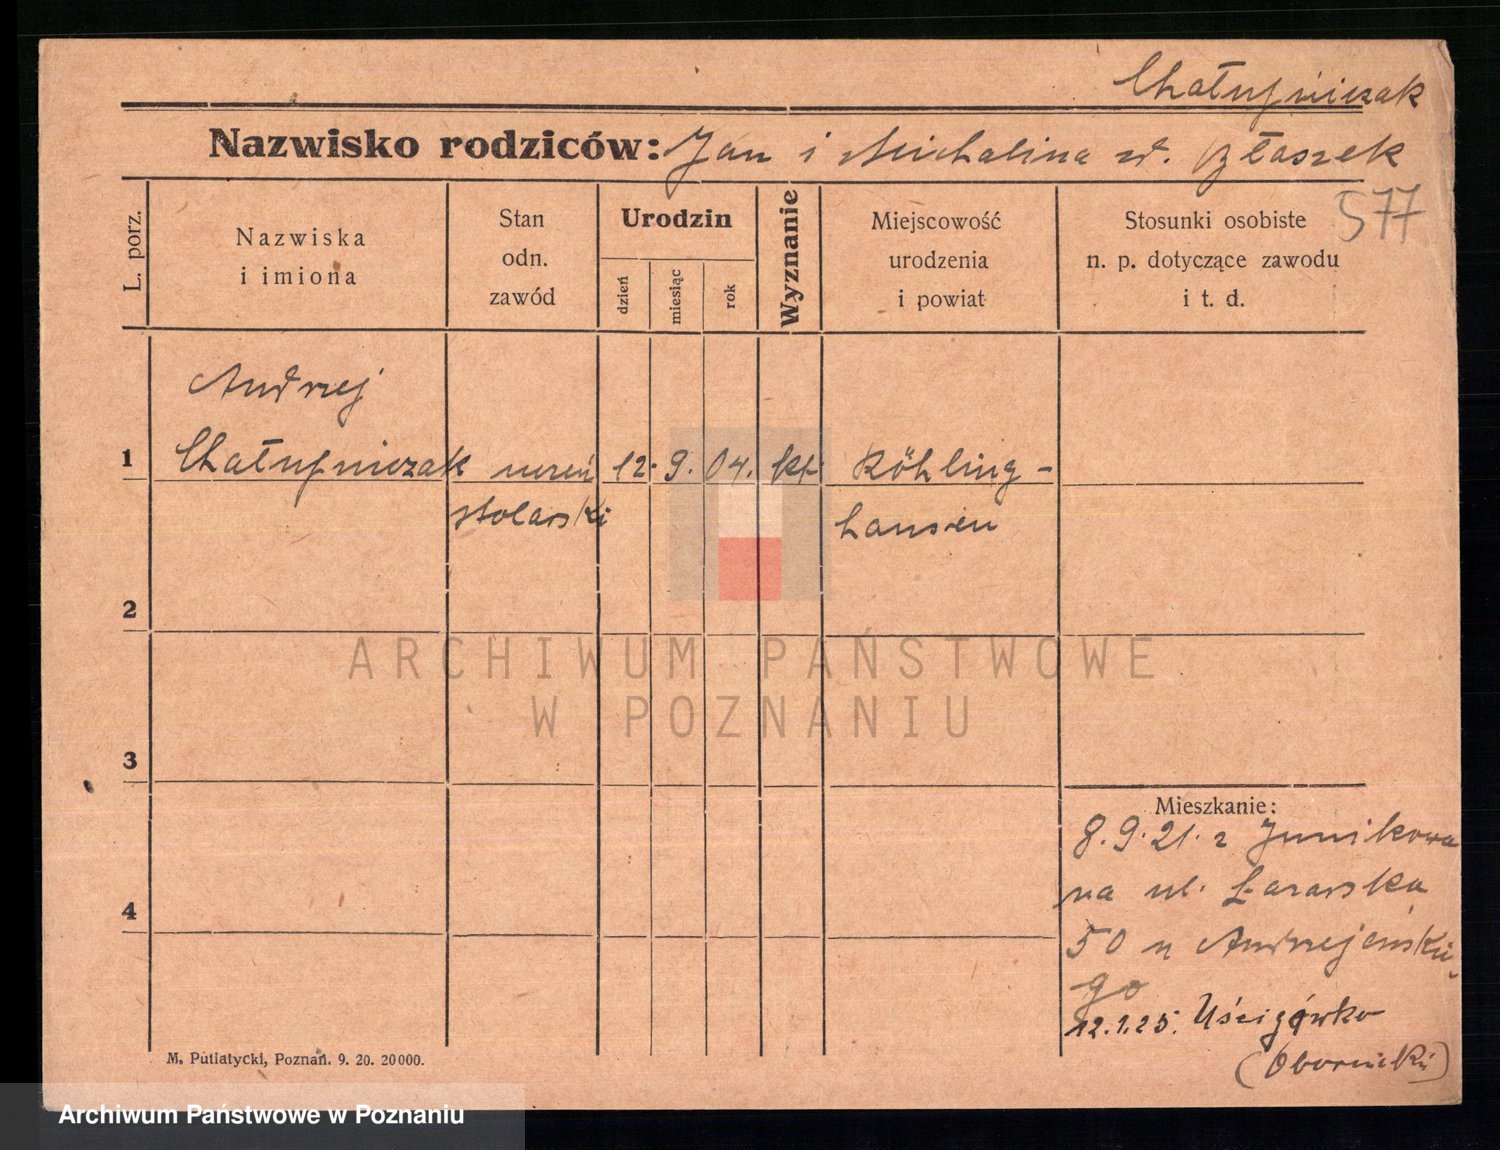 Chałupniczak
Nazwisko rodziców: Jan i Michalina zd. Błaszek
577
L. porz.
Nazwiska
i imiona
Stan
odn.
zawód
Urodzin
dzień
miesiąc
rok
Wyznanie
Miejscowość
urodzenia
i powiat
Stosunki osobiste
n. p. dotyczące zawodu
i t. d.
Andrzej
1 Chałupniczak uczeń 12. 9. 04. kt. Röhling-
stolarski hausen
2
ARCHIWUM PAŃSTWOWE
W POZNANIU
3
Mieszkanie:
8.9.21. z Junikowa
na ul. Łazarska
4
50 u Andrzejewskie-
go
12.1.25.
(Obornicki)
M. Putiatycki, Poznań. 9. 20. 20000.
Archiwum Państwowe w Poznaniu